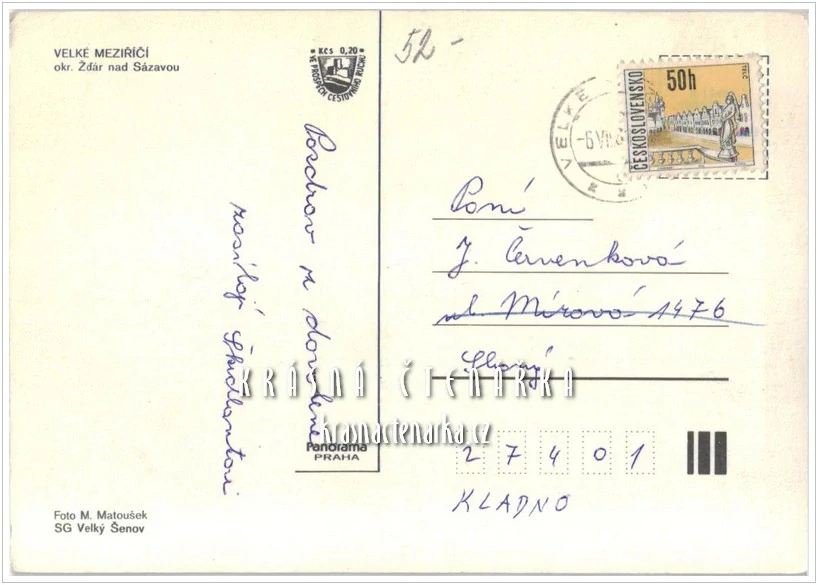 VELKÉ MEZIŘÍČÍ
okr. Žďár nad Sázavou
Kčs 0,20
VE PROSPĚCH CESTOVNÍHO RUCHU
52-
VELKÉ
-6.VII.
ČESKOSLOVENSKO
50h
TELČ
Pozdrav z dovolené
zasílají
Paní
J. Červenková
ul. Mírová 1476
Slaný
KRÁSNÁ ČTENÁŘKA
krasnactenarka.cz
Panorama
PRAHA
27401
KLADNO
Foto M. Matoušek
SG Velký Šenov